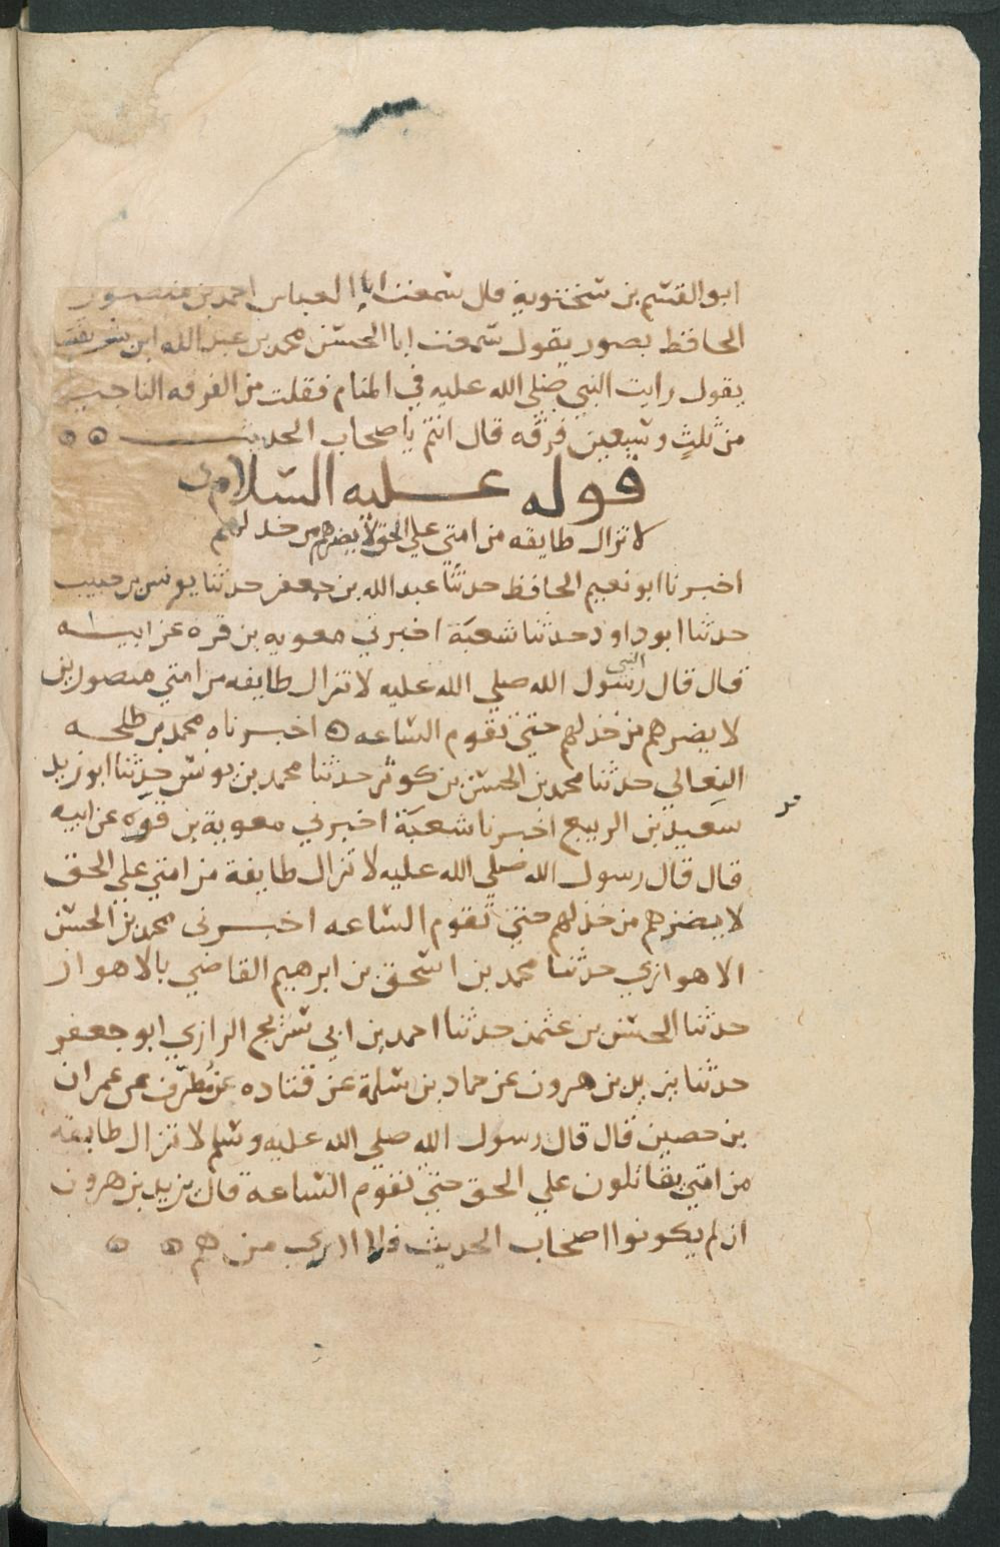 ابو القسم بن سختويه قال سمعت ابا العباس احمد بن منصور
الحافظ بصور يقول سمعت ابا الحسن محمد بن عبد الله ابن بشر
يقول رايت النبي صلي الله عليه في المنام فقلت من الفرقه الناجيه
من ثلث وسبعين فرقه قال انتم يا صحاب الحديث
قوله عليه السلام
لا تزال طايفه من امتي علي الحق لا يضرهم من خذلهم
اخبرنا ابو نعيم الحافظ حدثنا عبد الله بن جعفر حدثنا يونس بن حبيب
حدثنا ابو داود حدثنا شعبة اخبرني معويه بن قره عن ابيه
قال قال رسول الله صلي الله عليه لا تزال طايفه من امتي منصورين
النبي
لا يضرهم من خذلهم حتي تقوم الساعه ه اخبرناه محمد بن طلحه
النعالي حدثنا محمد بن الحسن بن كوثر حدثنا محمد بن يونس حدثنا ابو زيد
سعيد بن الربيع اخبرنا شعبة اخبرني معوية بن قره عن ابيه
قال قال رسول الله صلي الله عليه لا تزال طايفة من امتي علي الحق
لا يضرهم من خذلهم حتي تقوم الساعه اخبرني محمد بن الحسن
الاهوازي حدثنا محمد بن اسحق بن ابرهيم القاضي بالاهواز
حدثنا الحسن بن عثمن حدثنا احمد بن ابي سريج الرازي ابو جعفر
حدثنا يزيد بن هرون عن حماد بن سلمة عن قتاده عن مطرف عن عمران
بن حصين قال قال رسول الله صلي الله عليه وسلم لا تزال طايفه
من امتي يقاتلون علي الحق حتي تقوم الساعة قال يزيد بن هرون
ان لم يكونوا اصحاب الحديث فلا ادري من هم ه ه